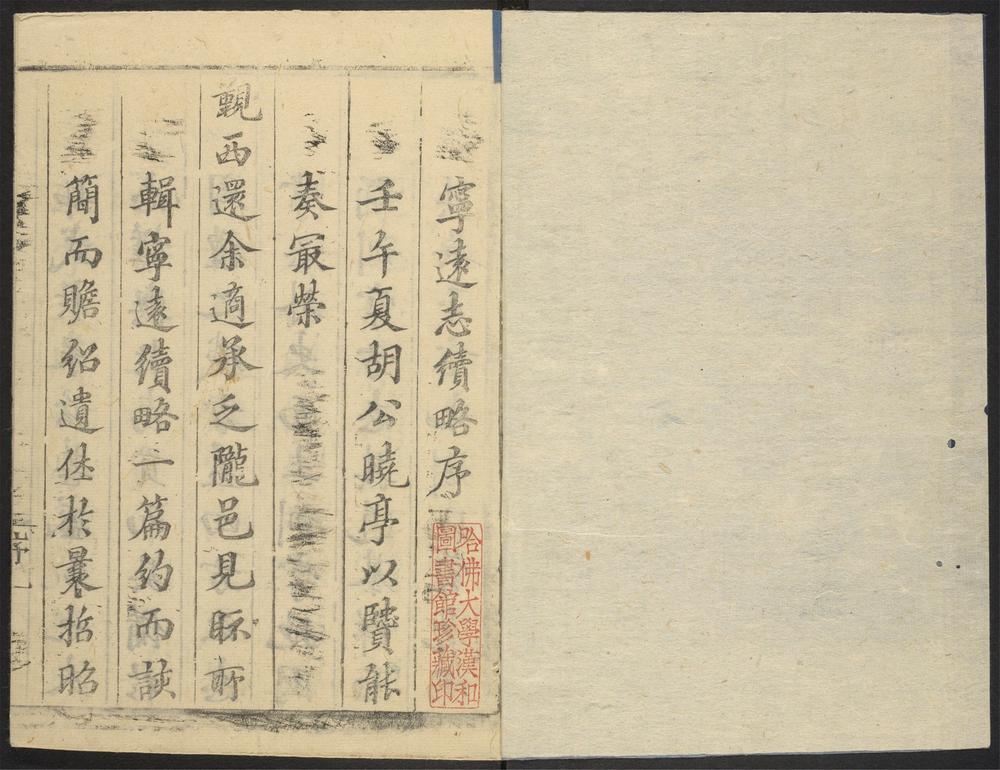 寧遠志續略序
壬午夏胡公曉亭以賢能
奏最榮
覲西還余適承乏隴邑見眎所
輯寧遠續略一篇約而該
簡而贍紹遺佚於曩哲昭
哈佛大學漢和
圖書館珍藏印
序